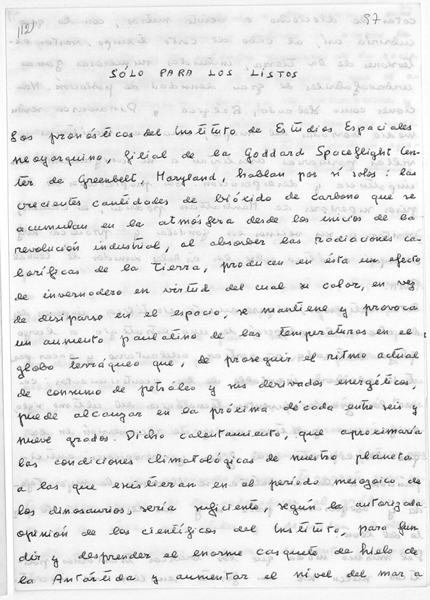 112)
97
SÓLO PARA LOS LISTOS
Los pronósticos del Instituto de Estudios Espaciales
neoyorquino, filial de la Goddard Spaceflight Cen-
ter de Greenbelt, Maryland, hablan por sí solos: las
crecientes cantidades de bióxido de carbono que se
acumulan en la atmósfera desde los inicios de la
revolución industrial, al absorber las radiaciones ca-
loríficas de la Tierra, producen en ésta un efecto
de invernadero en virtud del cual su calor, en vez
de disiparse en el espacio, se mantiene y provoca
un aumento paulatino de las temperaturas en el
globo terráqueo que, de proseguir el ritmo actual
de consumo de petróleo y sus derivados energéticos,
puede alcanzar en la próxima década entre seis y
nueve grados. Dicho calentamiento, que aproximaría
las condiciones climatológicas de nuestro planeta
a las que existieran en el período mesozoico de
los dinosaurios, sería suficiente, según la autorizada
opinión de los científicos del Instituto, para fun-
dir y desprender el enorme casquete de hielo de
la Antártida y aumentar el nivel del mar a